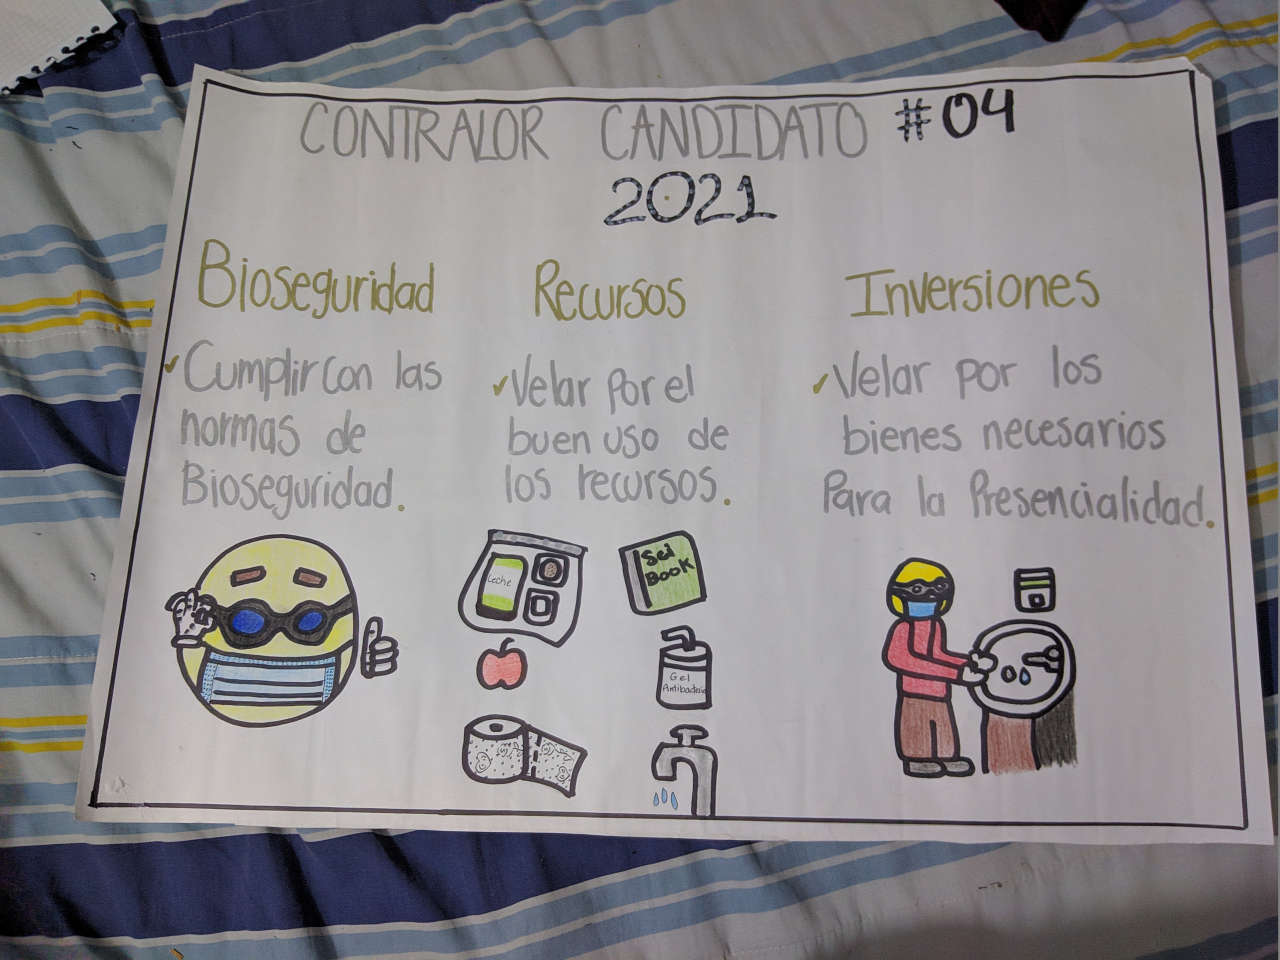 CONTRALOR CANDIDATO #04
2021
Bioseguridad
✓Cumplir con las
normas de
Bioseguridad.
Recursos
✓Velar por el
buen uso de
los recursos.
Inversiones
✓Velar por los
bienes necesarios
Para la Presencialidad.
Leche
Sei
Book
Gel